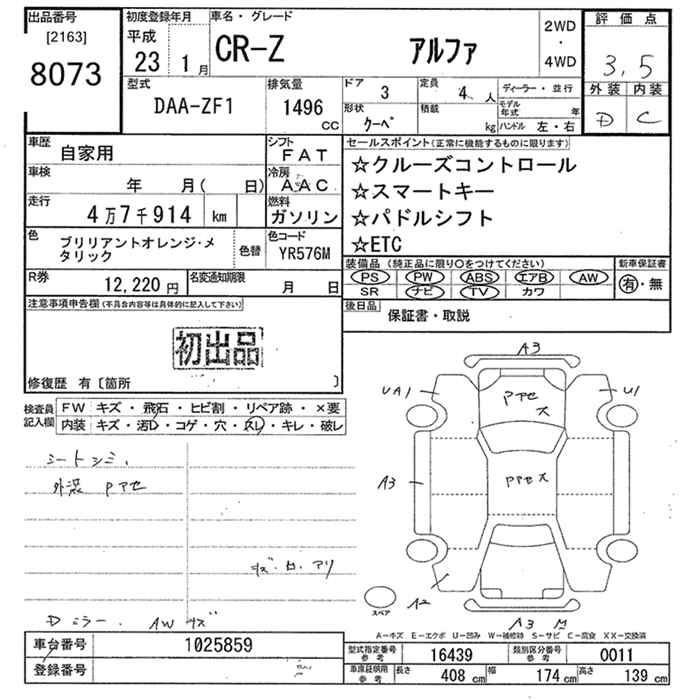 出品番号
[2163]
8073
初度登録年月
平成
23 1月
車名・グレード
CR-Z アルファ
2WD
・
4WD
評価点
3,5
外装 内装
D C
型式
DAA-ZF1
排気量
1496
CC
ドア 3
定員 4人
ディーラー・並行
形状
クーペ
積載
kg
モデル
年式 年
ハンドル 左・右
車歴
自家用
シフト
FAT
車検
年 月( 日)
冷房
AAC
走行
4万7千914 km
燃料
ガソリン
色
ブリリアントオレンジ・メ
タリック
色替
色コード
YR576M
R券
12,220円
名変通知期限
月 日
セールスポイント(正常に機能するものに限ります)
☆クルーズコントロール
☆スマートキー
☆パドルシフト
☆ETC
装備品(純正品に限り○をつけてください)
PS PW ABS エアB AW
SR ナビ TV カワ
新車保証書
有・無
後日品
保証書・取説
注意事項申告欄(不具合内容等は具体的に記入して下さい)
初出品
修復歴 有〔箇所 〕
検査員
記入欄
FW キズ・飛石・ヒビ割・リペア跡・×要
内装 キズ・汚D・コゲ・穴・スレ・キレ・破レ
シートシミ、
外装 Pアセ
キズ・凹・アリ
Dミラー、AWキズ
A3
UA1
U1
Pアセ
大
A3
PPセ大
A2
スペア
A3
A－キズ E－エクボ U－凹み W－補修跡 S－サビ C－腐食 XX－交換済
車台番号
1025859
登録番号
型式指定番号
参考
16439
類別区分番号
参考
0011
車庫証明用
参考
長さ 408 cm
幅 174 cm
高さ 139 cm